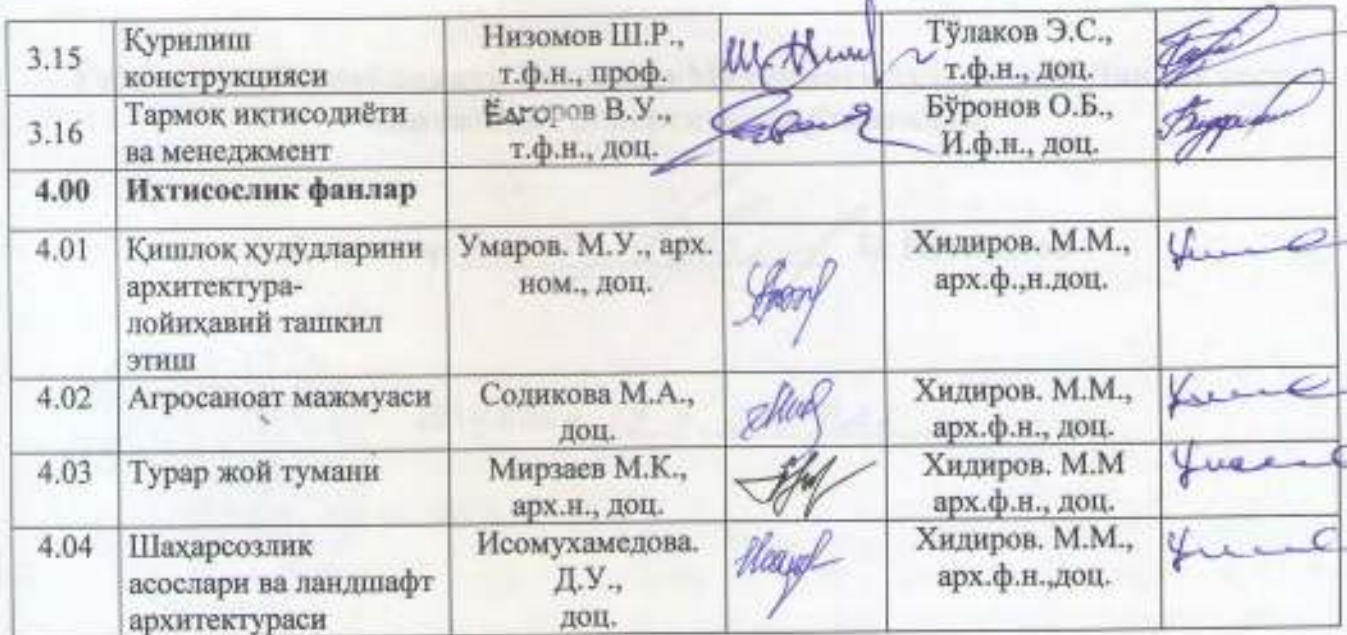 3.15
Қурилиш
конструкцияси
Низомов Ш.Р.,
т.ф.н., проф.
Тўлаков Э.С.,
т.ф.н., доц.
3.16
Тармоқ иқтисодиёти
ва менеджмент
Ёдгоров В.У.,
т.ф.н., доц.
Бўронов О.Б.,
И.ф.н., доц.
4.00
Ихтисослик фанлар
4.01
Қишлоқ ҳудудларини
архитектура-
лойиҳавий ташкил
этиш
Умаров. М.У., арх.
ном., доц.
Хидиров. М.М.,
арх.ф.,н.доц.
4.02
Агросаноат мажмуаси
Содикова М.А.,
доц.
Хидиров. М.М.,
арх.ф.н., доц.
4.03
Турар жой тумани
Мирзаев М.К.,
арх.н., доц.
Хидиров. М.М
арх.ф.н., доц.
4.04
Шаҳарсозлик
асослари ва ландшафт
архитектураси
Исомухамедова.
Д.У.,
доц.
Хидиров. М.М.,
арх.ф.н.,доц.